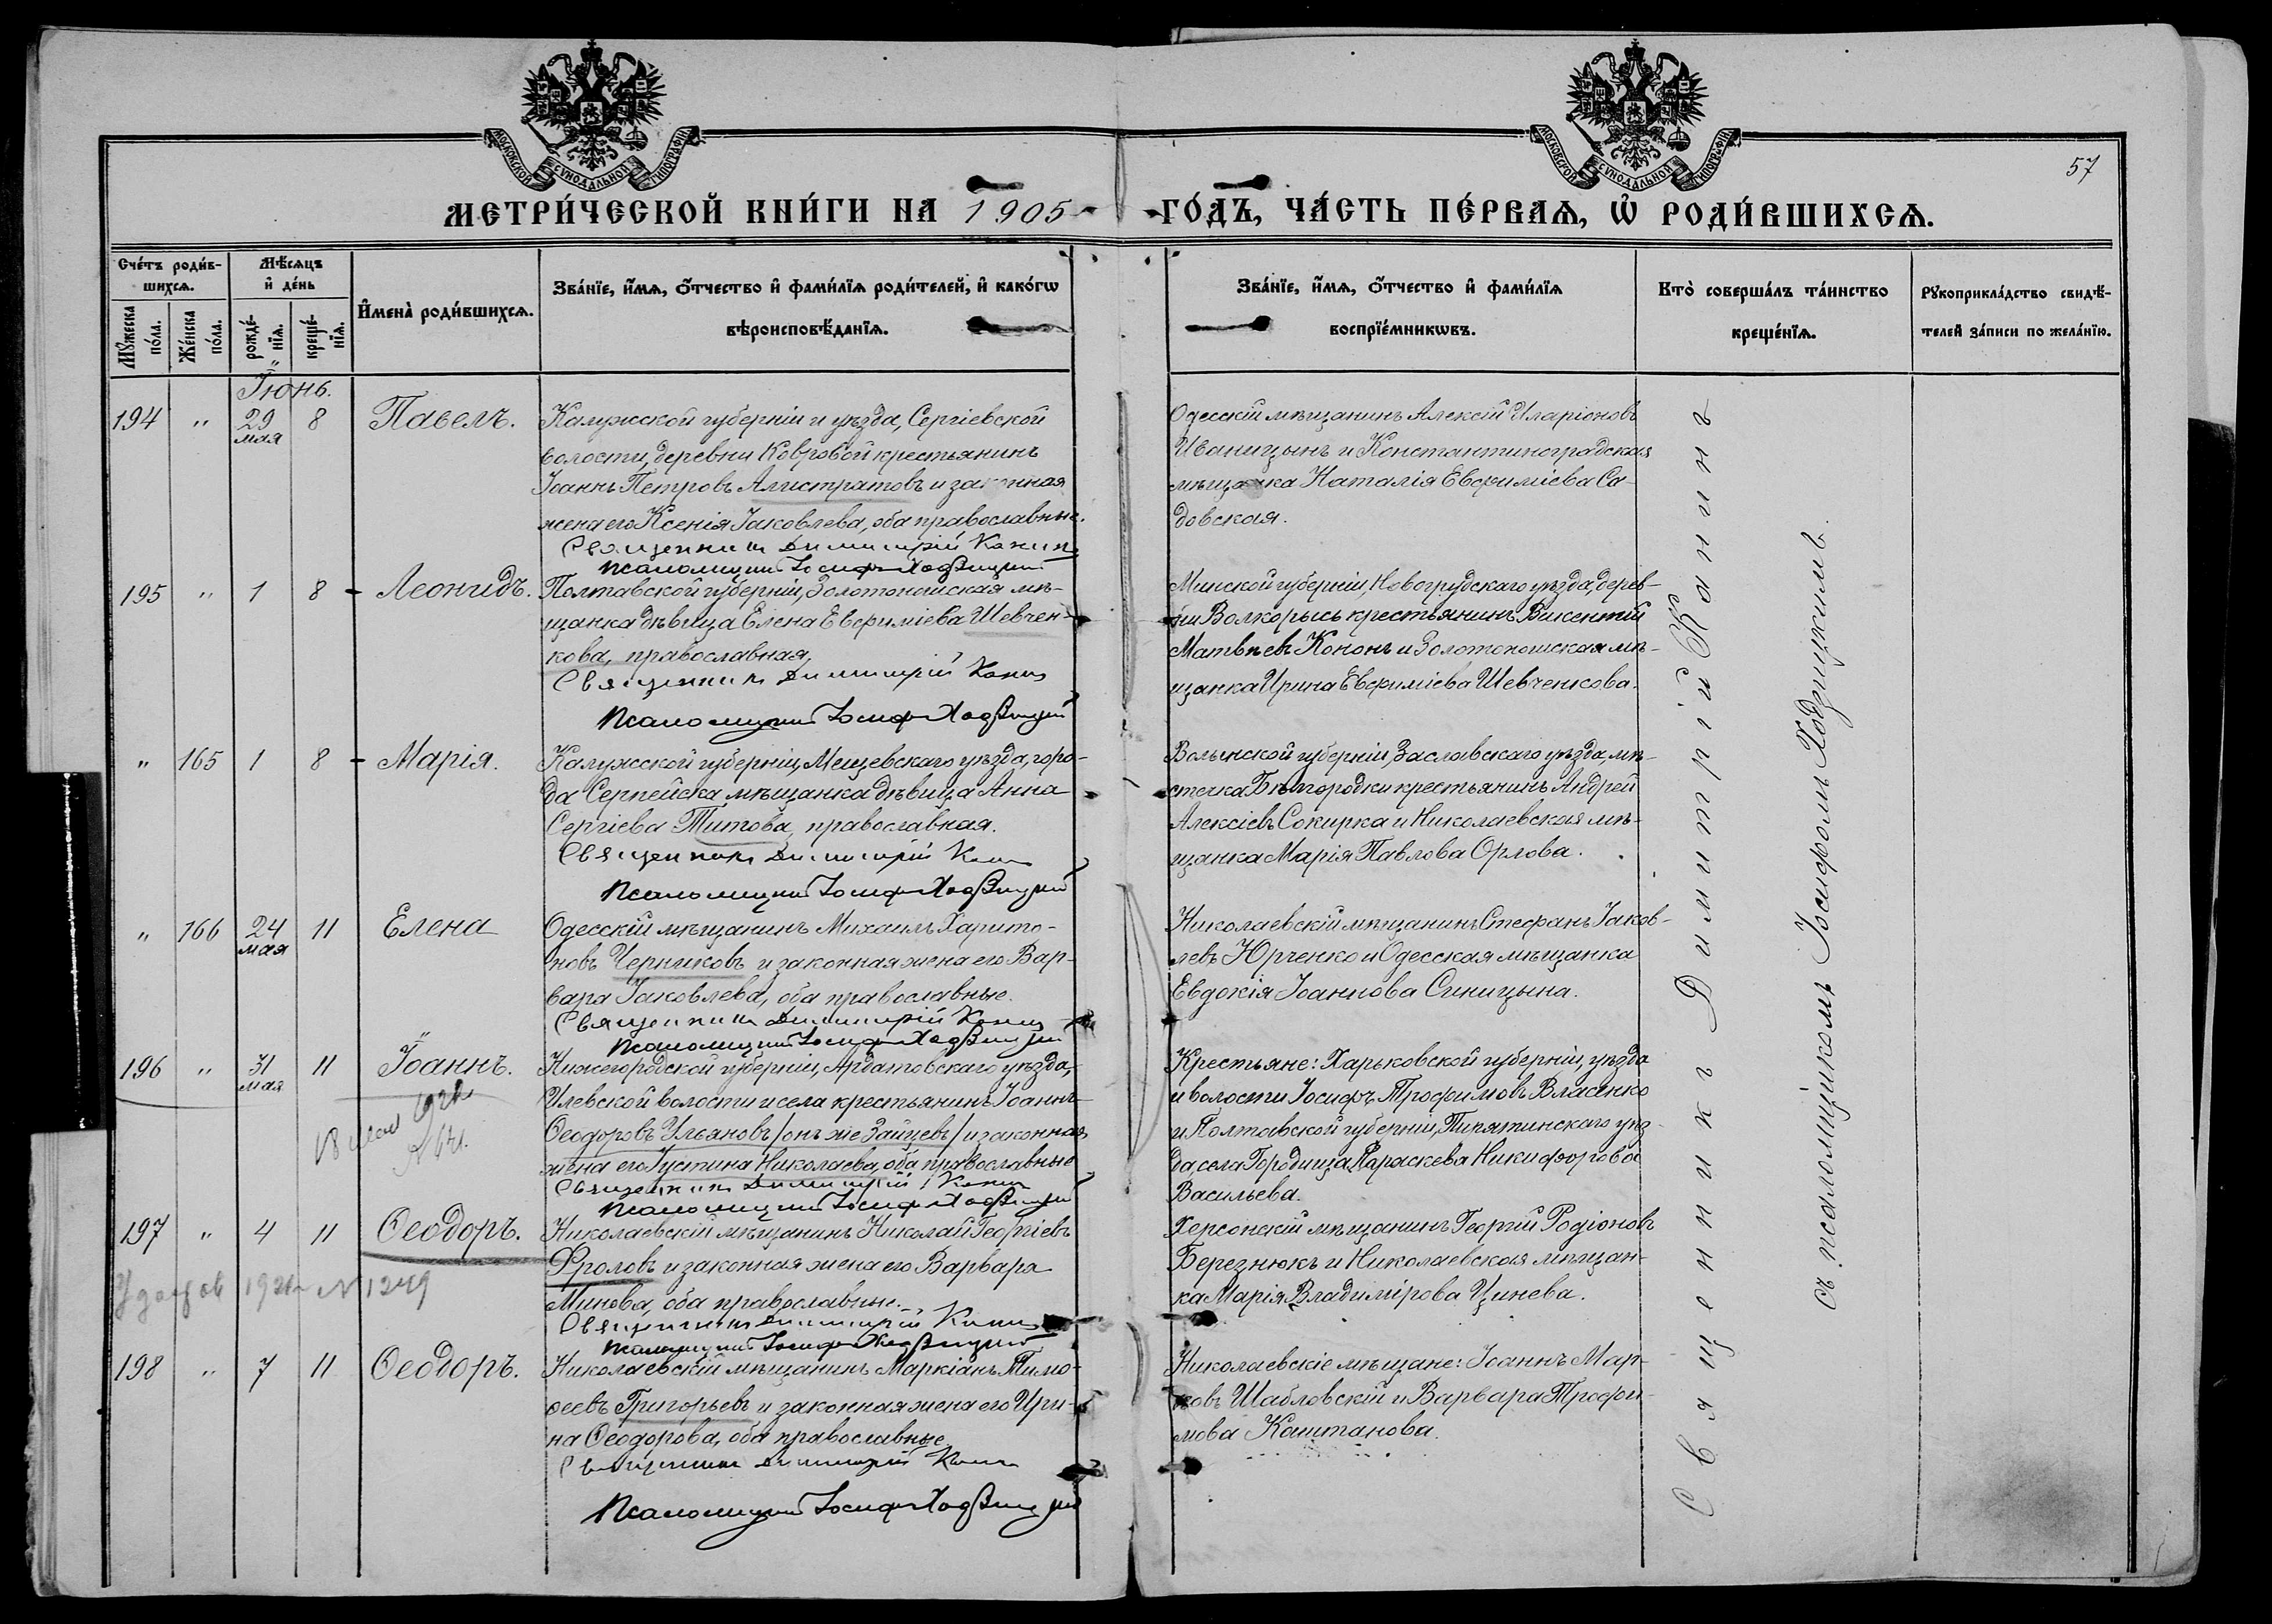 МОСКОВСКОЙ СѴНОДАЛЬНОЙ ТИПОГРАФІИ
МОСКОВСКОЙ СѴНОДАЛЬНОЙ ТИПОГРАФІИ
57
МЕТРИ́ЧЕСКОЙ КНИ́ГИ НА 1905 ГО́ДЪ, ЧА́СТЬ ПЕ́РВАЯ, Ѡ҆ РОДИ́ВШИХСѦ.
Сче́тъ роди́в-
шихсѧ.
Мѣ́сѧцъ
и҆ де́нь
И҆мена̀ роди́вшихсѧ.
Зва́нїе, и҆́мѧ, ѻ҆́тчество и҆ фами́лїѧ роди́телей, и҆ како́гѡ
вѣроисповѣ́данїѧ.
Зва́нїе, и҆́мѧ, ѻ҆́тчество и҆ фами́лїѧ
воспрїе́мникѡвъ.
Кто̀ соверша́лъ та́инство
креще́нїѧ.
Рꙋкоприкла́дство свидѣ́-
телей за́писи по жела́нїю.
Мꙋ́жеска
по́ла.
Же́нска
по́ла.
рожде́-
нїѧ.
креще́-
нїѧ.
Іюнь.
194 " 29 мая 8 Павелъ.
Калужской губерніи и уѣзда, Сергіевской
волости, деревни Ковровой крестьянинъ
Іоаннъ Петровъ Алистратовъ и законная
жена его Ксенія Іаковлева, оба православные.
Священникъ Димитрій Канинъ
Псаломщикъ Іосифъ Ходзицкій
Одесскій мѣщанинъ Алексій Иларіоновъ
Иваницынъ и Константиноградская
мѣщанка Наталія Евфиміева Са-
довская.
195 " 1 8 Леонидъ.
Полтавской губерніи, Золотоношская мѣ-
щанка дѣвица Елена Евфиміева Шевчен-
кова, православная.
Священникъ Димитрій Канинъ
Псаломщикъ Іосифъ Ходзицкій
Минской губерніи, Новогрудскаго уѣзда, дерев-
ни Волкорысь крестьянинъ Викентій
Матвѣевъ Кононъ и Золотоношская мѣ-
щанка Ирина Евфиміева Шевченкова.
" 165 1 8 Марія.
Калужской губерніи, Мещевскаго уѣзда, горо-
да Серпейска мѣщанка дѣвица Анна
Сергіева Титова, православная.
Священникъ Димитрій Канинъ
Псаломщикъ Іосифъ Ходзицкій
Волынской губерніи, Заславскаго уѣзда, мѣ-
стечка Бѣлгородки крестьянинъ Андрей
Алексіевъ Сокирка и Николаевская мѣ-
щанка Марія Павлова Орлова.
" 166 24 мая 11 Елена
Одесскій мѣщанинъ Михаилъ Харито-
новъ Черниковъ и законная жена его Вар-
вара Іаковлева, оба православные.
Священникъ Димитрій Канинъ
Псаломщикъ Іосифъ Ходзицкій
Николаевскій мѣщанинъ Стефанъ Іаков-
левъ Юрченко и Одесская мѣщанка
Евдокія Іоаннова Синицына.
196 " 31 мая 11 Іоаннъ.
Нижегородской губерніи, Ардатовскаго уѣзда,
Илевской волости и села крестьянинъ Іоаннъ
Ѳеодоровъ Ульяновъ /онъ же Зайцевъ/ и законная
жена его Іустина Николаева, оба православные
Священникъ Димитрій Канинъ
Псаломщикъ Іосифъ Ходзицкій
Крестьяне: Харьковской губерніи, уѣзда
и волости Іосифъ Трофимовъ Власенко
и Полтавской губерніи, Пирятинскаго уѣз-
да, села Городища, Параскева Никифорова
Васильева.
197 " 4 11 Ѳеодоръ.
1249
Николаевскій мѣщанинъ Николай Георгіевъ
Фроловъ и законная жена его Варвара
Минова, оба православные.
Священникъ Димитрій Канинъ
Псаломщикъ Іосифъ Ходзицкій
Херсонскій мѣщанинъ Георгій Родіоновъ
Березнюкъ и Николаевская мѣщан-
ка Марія Владимірова Цинева.
198 " 7 11 Ѳеодоръ.
Николаевскій мѣщанинъ Маркіанъ Тимо-
ѳеевъ Григорьевъ и законная жена его Ири-
на Ѳеодорова, оба православные
Священникъ Димитрій Канинъ
Псаломщикъ Іосифъ Ходзицкій
Николаевскіе мѣщане: Іоаннъ Мар-
ковъ Шабловскій и Варвара Трофи-
мова Каштанова.
Священникъ Димитрій Канинъ
съ псаломщикомъ Іосифомъ Ходзицкимъ.